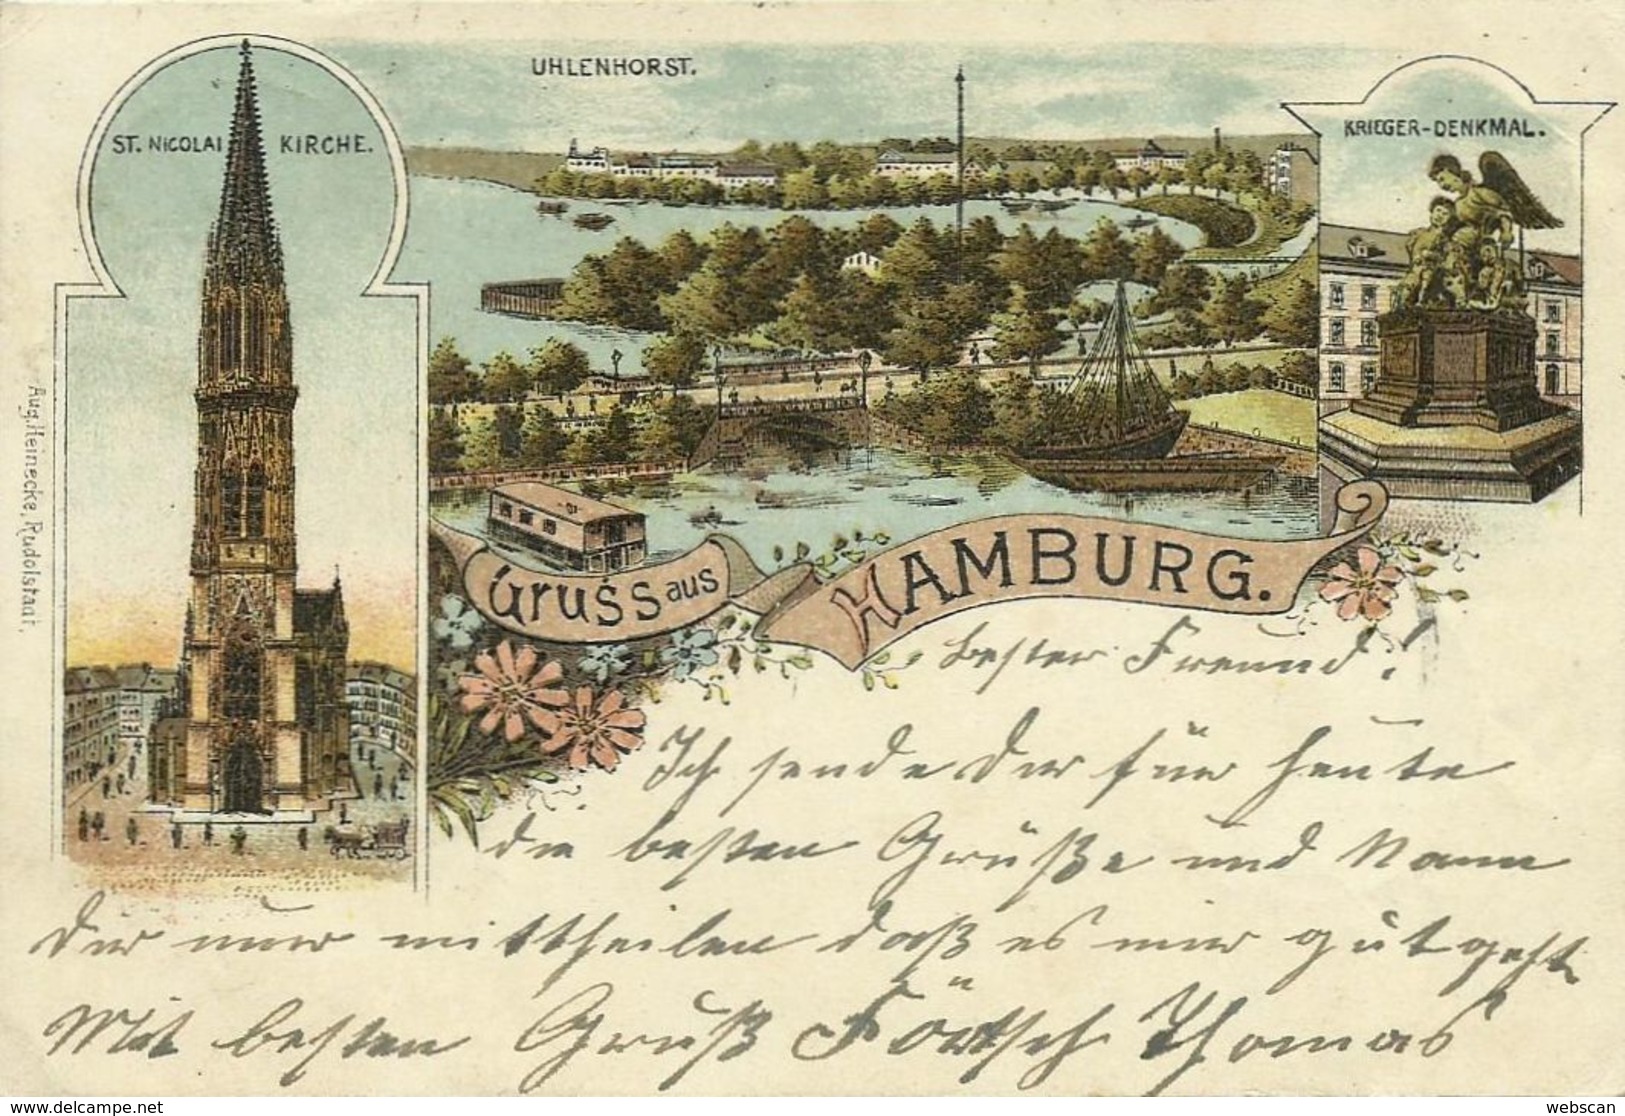 UHLENHORST.
ST. NICOLAI KIRCHE.
KRIEGER-DENKMAL.
Aug. Heinecke, Rudolstadt.
Gruss aus HAMBURG.
bester Freund!
Ich sende Dir für heute
die besten Grüße und kann
Dir nur mittheilen daß es mir gut geht
Mit besten Gruß Förtsch Thomas
www.delcampe.net
webscan